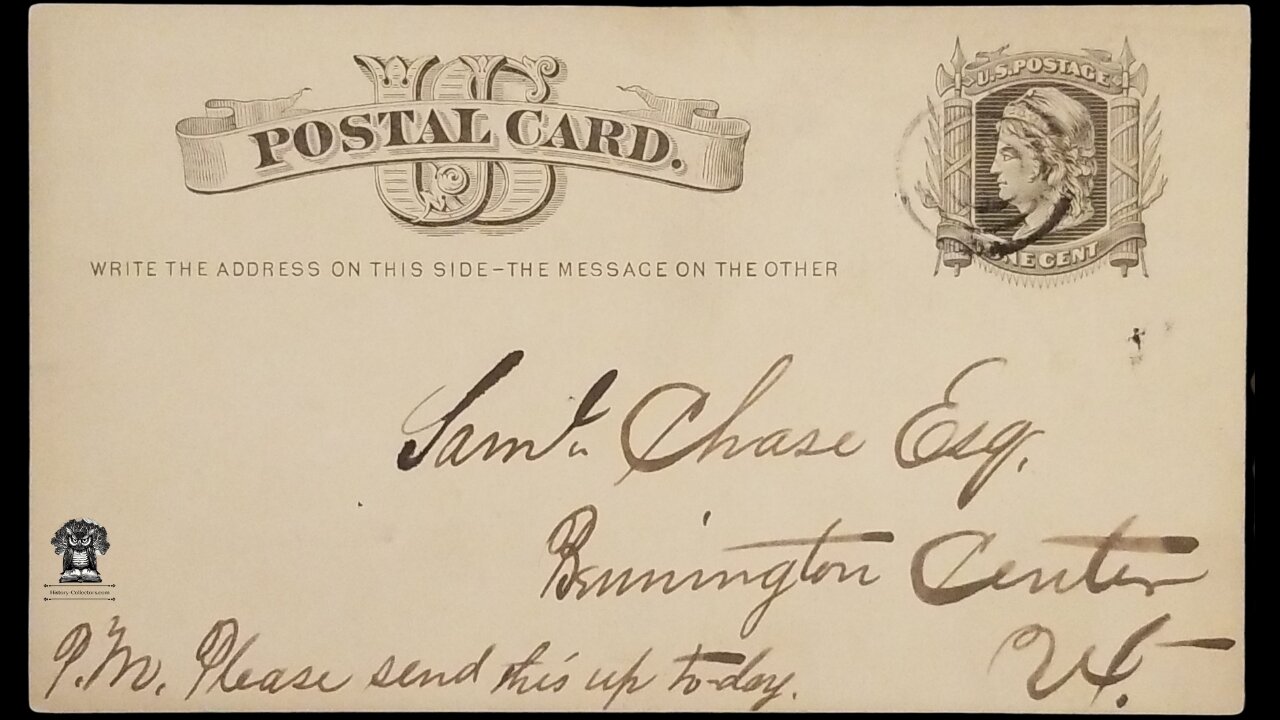 US
POSTAL CARD.
U.S. POSTAGE
ONE CENT
WRITE THE ADDRESS ON THIS SIDE–THE MESSAGE ON THE OTHER
Saml. Chase Esq.
Bennington Center
Vt.
P.M. Please send this up to-day.
History-Collectors.com